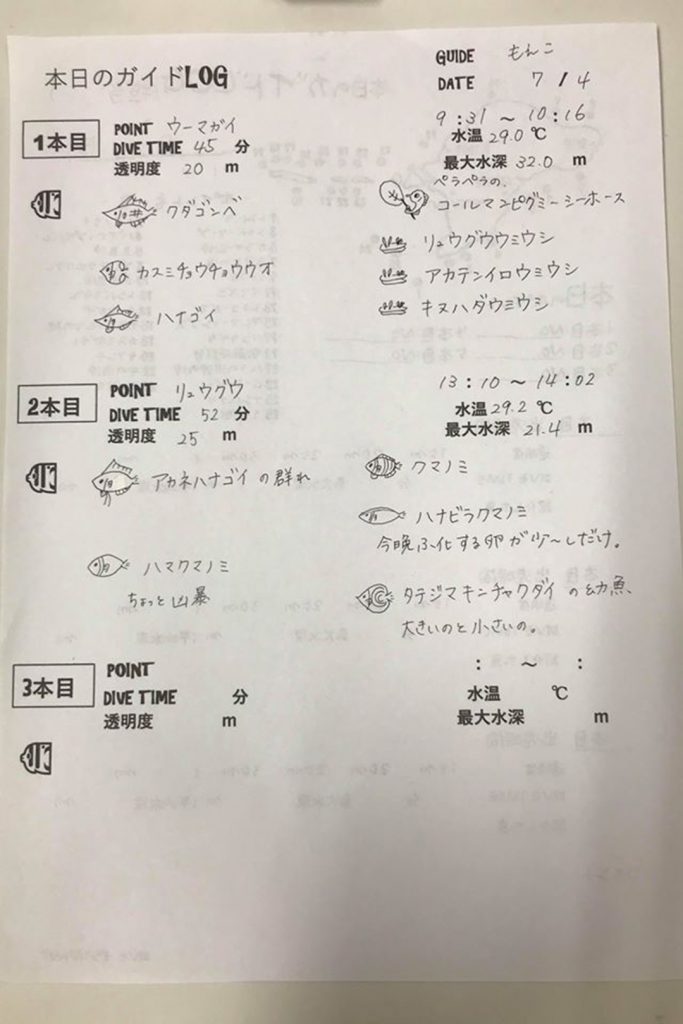 本日のガイドLOG
GUIDE もんこ
DATE 7 / 4
1本目
POINT ウーマガイ
DIVE TIME 45 分
透明度 20 m
9:31 ~ 10:16
水温 29.0 ℃
最大水深 32.0 m
クダゴンベ
カスミチョウチョウウオ
ハナゴイ
ペラペラの、
コールマンピグミーシーホース
リュウグウウミウシ
アカテンイロウミウシ
キヌハダウミウシ
2本目
POINT リュウグウ
DIVE TIME 52 分
透明度 25 m
13:10 ~ 14:02
水温 29.2 ℃
最大水深 21.4 m
アカネハナゴイ の群れ
ハマクマノミ
ちょっと凶暴
クマノミ
ハナビラクマノミ
今晩ふ化する卵が少〜しだけ。
タテジマキンチャクダイ の幼魚、
大きいのと小さいの。
3本目
POINT
DIVE TIME 分
透明度 m
: ~ :
水温 ℃
最大水深 m